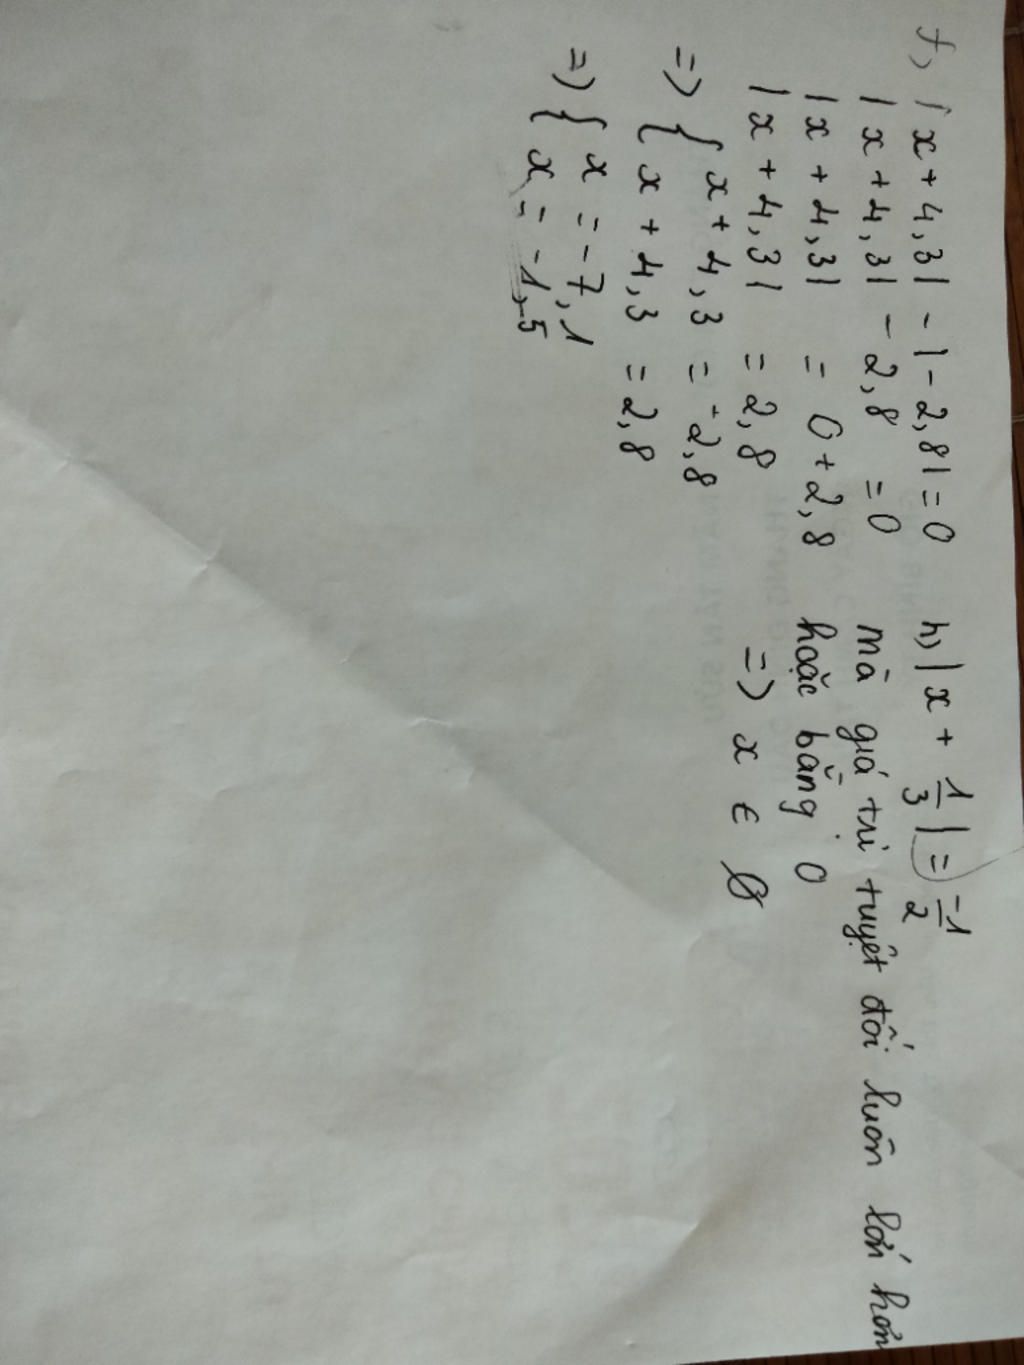 f, |x + 4,3| - |-2,8| = 0
|x + 4,3| - 2,8 = 0
|x + 4,3| = 0 + 2,8
|x + 4,3| = 2,8
=> { x + 4,3 = -2,8
{ x + 4,3 = 2,8
=> { x = -7,1
{ x = -1,5
h, |x + 1/3| = -1/2
mà giá trị tuyệt đối luôn lớn hơn
hoặc bằng 0
=> x ∈ ∅